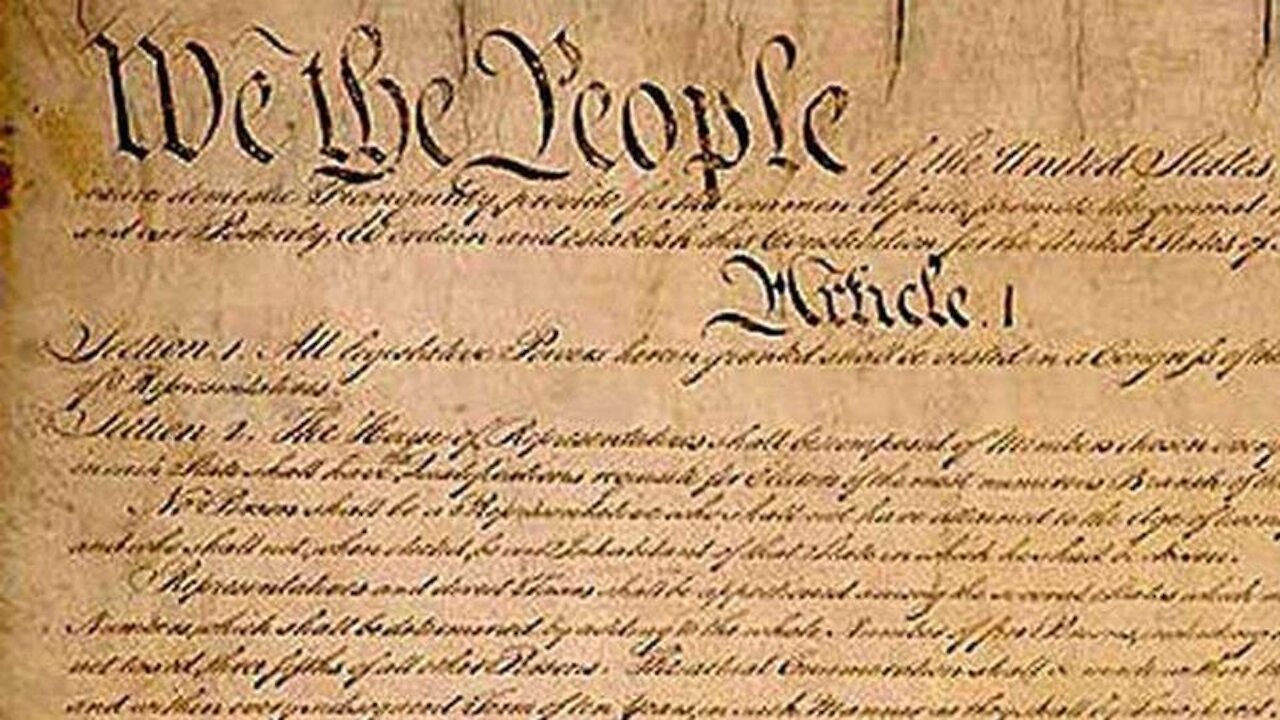 We the People of the United States,
insure domestic Tranquility, provide for the common defence, promote the general
and our Posterity, do ordain and establish this Constitution for the United States of
Article. I.
Section. 1. All legislative Powers herein granted shall be vested in a Congress of the
of Representatives.
Section. 2. The House of Representatives shall be composed of Members chosen every
in each State shall have Qualifications requisite for Electors of the most numerous Branch of the
No Person shall be a Representative who shall not have attained to the Age of twenty
and who shall not, when elected, be an Inhabitant of that State in which he shall be chosen.
Representatives and direct Taxes shall be apportioned among the several States which
Numbers, which shall be determined by adding to the whole Number of free Persons, including
not taxed, three fifths of all other Persons. The actual Enumeration shall be made within
and within every subsequent Term of ten Years, in such Manner as they shall by Law